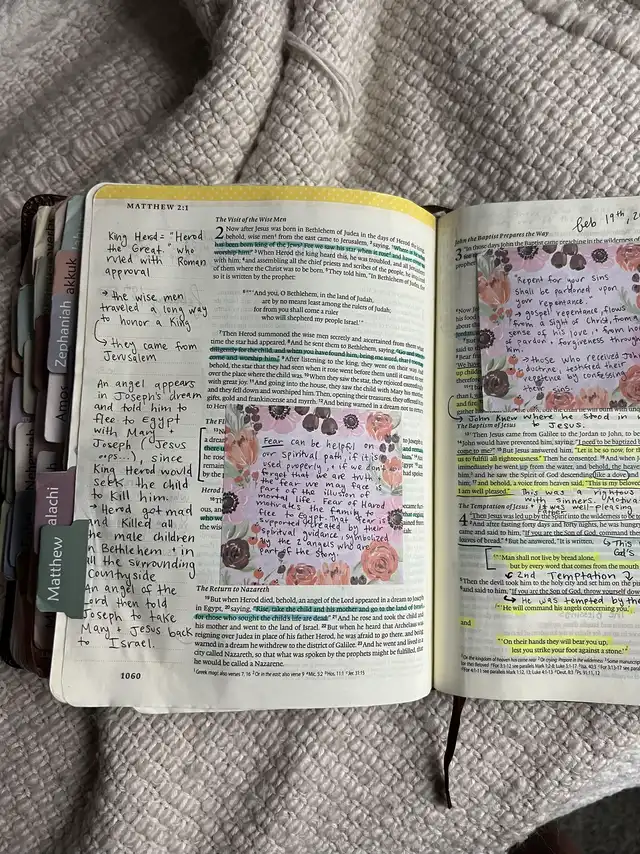 MATTHEW 2:1
King Herod = "Herod
the Great" who
ruled with Roman
approval
→ the wise men
traveled a long way
to honor a King
→ they came from
Jerusalem
An angel appears
in Joseph's dream
and told him to
flee to Egypt
with Mary +
Joseph (Jesus
oops...), since
King Herod would
seek the child
to kill him.
Herod got mad
and killed all
the male children
in Bethlehem + in
all the surrounding
countryside
An angel of the
Lord then told
Joseph to take
Mary + Jesus back
to Israel.
1060
akkuk
Zephaniah
Amos
alachi
Matthew
The Visit of the Wise Men
2 Now after Jesus was born in Bethlehem of Judea in the days of Herod the
behold, wise men from the east came to Jerusalem, saying, "Where is he who
has been born king of the Jews? For we saw his star when it rose and have
worship him." When Herod the king heard this, he was troubled, and all
with him; and assembling all the chief priests and scribes of the people, he inquired
of them where the Christ was to be born. They told him, "In Bethlehem of Judea,
so it is written by the prophet:
"'And you, O Bethlehem, in the land of Judah,
are by no means least among the rulers of Judah;
for from you shall come a ruler
who will shepherd my people Israel.'"
Then Herod summoned the wise men secretly and ascertained from them
time the star had appeared. And he sent them to Bethlehem, saying, "Go and search
diligently for the child, and when you have found him, bring me word, that I too may
come and worship him." After listening to the king, they went on their way.
behold, the star that they had seen when it rose went before them until it came to
over the place where the child was. When they saw the star, they rejoiced
with great joy. And going into the house, they saw the child with Mary his
and they fell down and worshiped him. Then, opening their treasures, they offered
gifts, gold and frankincense and myrrh. And being warned in a dream not to
to Herod
The Fl
Herod
Fear can be helpful on
our spiritual path, if it is
used properly, + if we don't
forget that we are truth +
the fear we may face is
part of the illusion of
mortal life. Fear of Herod
motivates the family to
flee to Egypt. That fear is
supported/guided by their
spiritual guidance, symbolized
by the 2 angels who are
part of the story.
The Return to Nazareth
But when Herod died, behold, an angel of the Lord appeared in a dream to Joseph
in Egypt, saying, "Rise, take the child and his mother and go to the land of Israel,
for those who sought the child's life are dead." And he rose and took the child and
his mother and went to the land of Israel. But when he heard that Archelaus was
reigning over Judea in place of his father Herod, he was afraid to go there, and being
warned in a dream he withdrew to the district of Galilee. And he went and lived in a
city called Nazareth, so that what was spoken by the prophets might be fulfilled, that
he would be called a Nazarene.
Feb 19th, 2
John the Baptist Prepares the Way
3 In those days John the Baptist came preaching in the wilderness of
Repent for your sins
shall be pardoned upon
your repentance.
→ gospel repentance, flows
from a sight of Christ, from a
sense of his love + from
of pardon + forgiveness through
him.
→ those who received John's
doctrine, testified their
repentance by confessing
their sins.
→ John knew where he stood in
The Baptism of Jesus
to Jesus.
Then Jesus came from Galilee to the Jordan to John, to be
John would have prevented him, saying, "I need to be baptized
come to me?" But Jesus answered him, "Let it be so now, for
us to fulfill all righteousness." Then he consented. And when
immediately he went up from the water, and behold, the heavens
him, and he saw the Spirit of God descending like a dove and
and behold, a voice from heaven said, "This is my beloved
I am well pleased."
This was a righteous
with sinners.
The Temptation of Jesus
it was well-pleasing
4 Then Jesus was led up by the Spirit into the wilderness to be
And after fasting forty days and forty nights, he was hungry.
came and said to him, "If you are the Son of God, command
loaves of bread." But he answered, "It is written,
→ This
God's
"'Man shall not live by bread alone,
but by every word that comes from the mouth
↙ 2nd Temptation ↘
Then the devil took him to the holy city and set him on the
and said to him, "If you are the Son of God, throw yourself down
→ He was tempted by the
"'He will command his angels concerning you,'
and
"'On their hands they will bear you up,
lest you strike your foot against a stone.'"